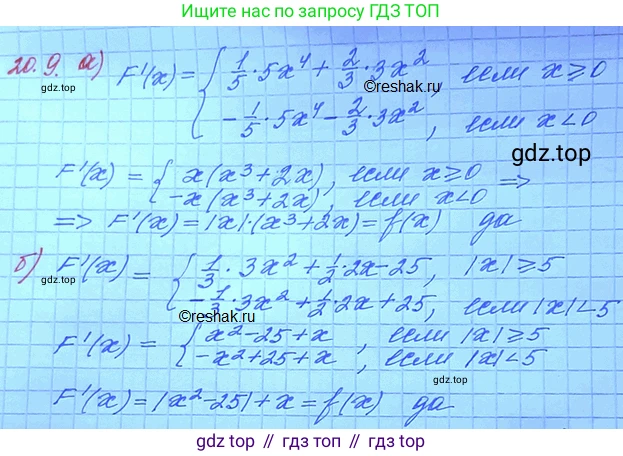 Ищите нас по запросу ГДЗ ТОП
20.9. а) F'(x) = { 1/5 · 5x⁴ + 2/3 · 3x², если x ≥ 0
gdz.top
©reshak.ru
-1/5 · 5x⁴ - 2/3 · 3x², если x < 0
gdz.top
F'(x) = { x(x³ + 2x), если x ≥ 0
-x(x³ + 2x), если x < 0 =>
=> F'(x) = |x|·(x³ + 2x) = f(x) да
б) F'(x) = { 1/3 · 3x² + 1/2 · 2x - 25, |x| ≥ 5
gdz.top
-1/3 · 3x² + 1/2 · 2x + 25, если |x| < 5
©reshak.ru
F'(x) = { x² - 25 + x, если |x| ≥ 5
-x² + 25 + x, если |x| < 5
gdz.top
F'(x) = |x² - 25| + x = f(x) да
gdz top // гдз топ // gdz.top